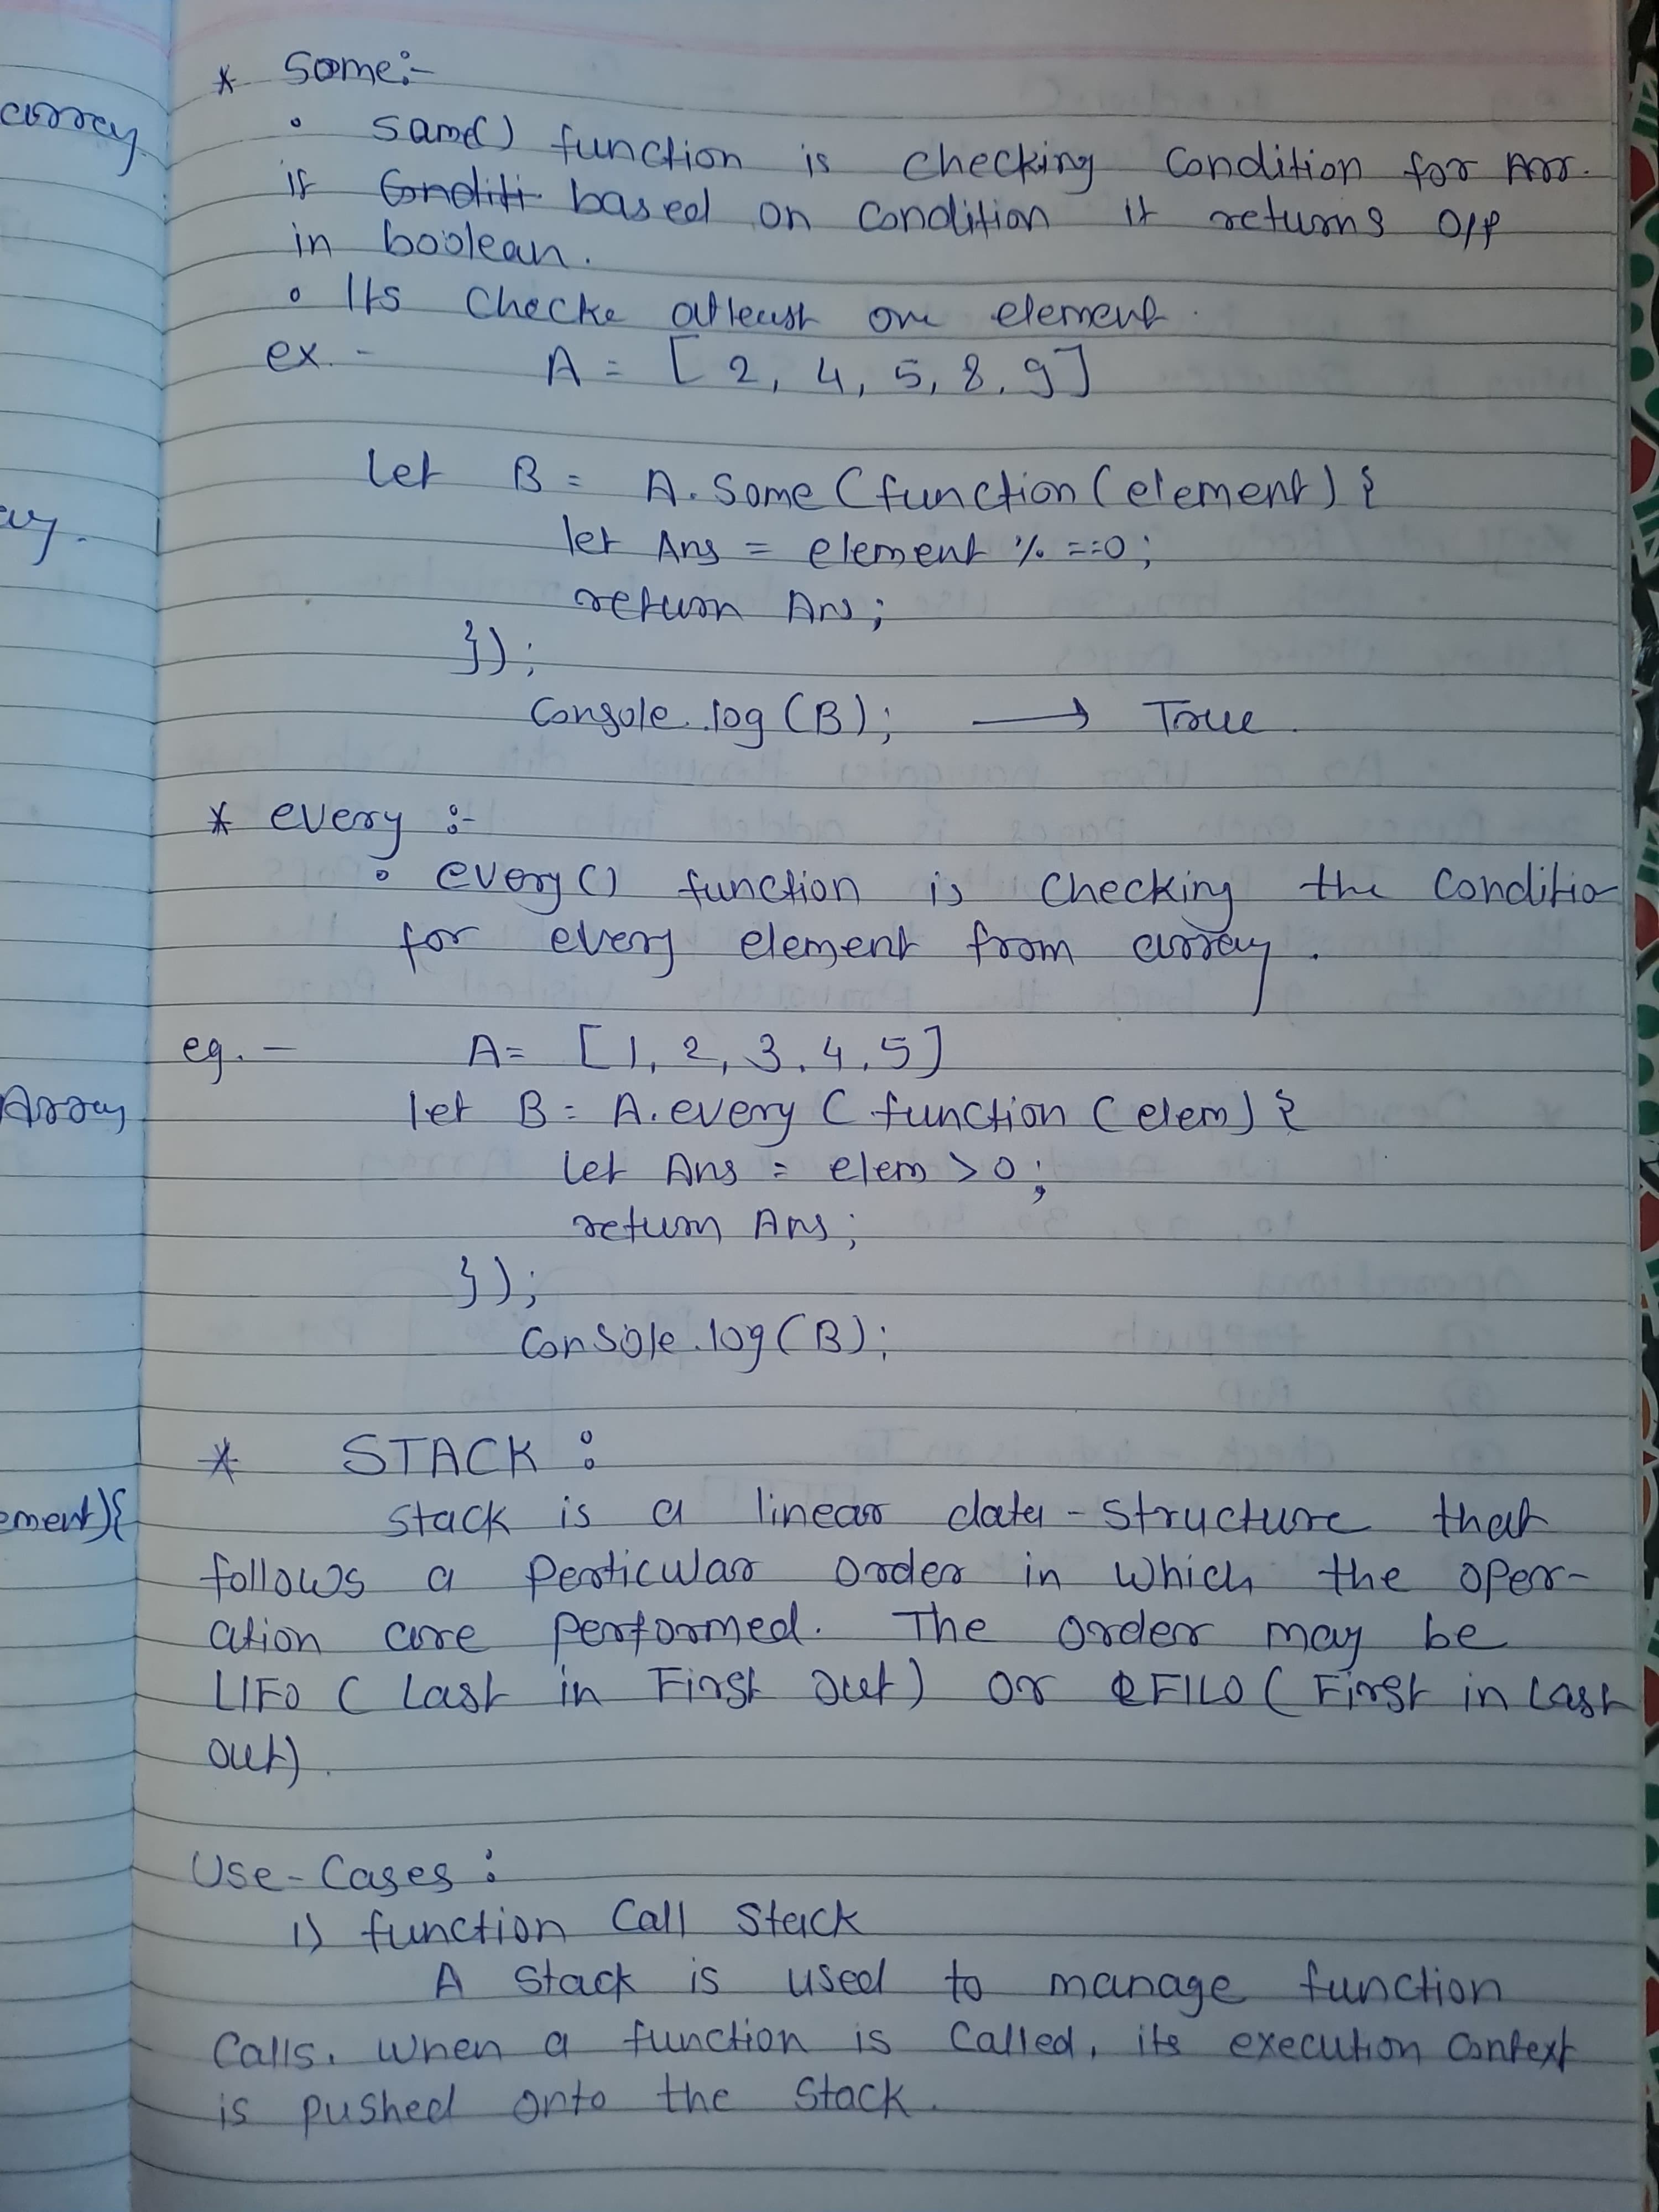 * Some:-
• some() function is checking condition for Arr.
if Conditi based on condition it returns O/P
in boolean.
• Its Checke atleast one element.
ex. - A = [2, 4, 5, 8, 9]
let B = A.some(function(element){
let Ans = element % ==0;
return Ans;
});
Console.log(B); → True.
* every :-
• every() function is checking the conditio
for every element from array.
eg. - A= [1, 2, 3, 4, 5]
let B = A.every(function(elem){
let Ans = elem > 0;
return Ans;
});
Console.log(B);
* STACK :
Stack is a linear data-structure that
follows a perticular order in which the oper-
ation are performed. The order may be
LIFO (Last in First Out) or FILO (First in Last
out).
Use-Cases :
1) function Call Stack
A Stack is used to manage function
Calls. When a function is Called, its execution context
is pushed onto the Stack.
array.
ay.
Array
ement){